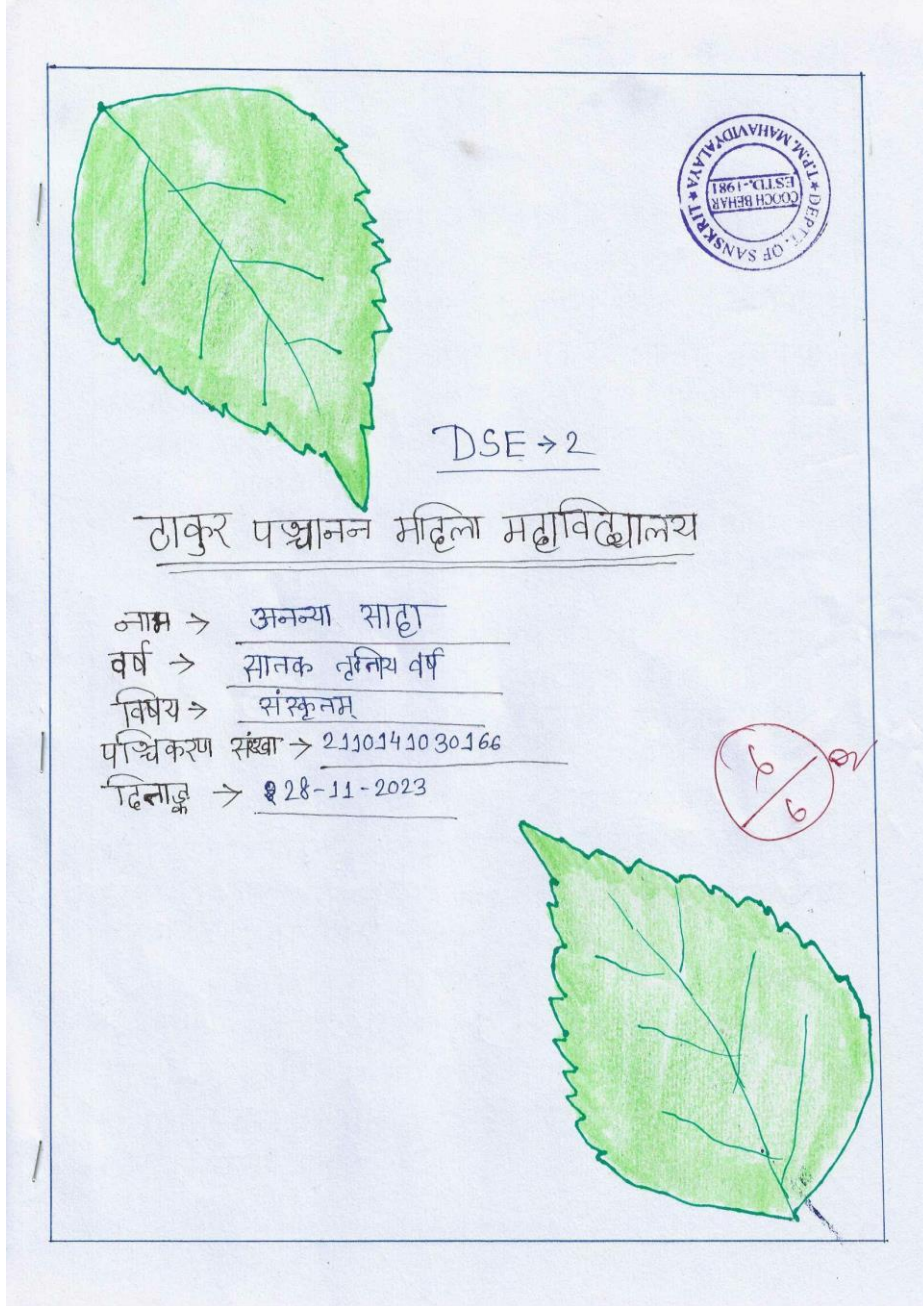 DEPTT. OF SANSKRIT ★ T.P.M. MAHAVIDYALAYA ★
COOCH BEHAR
ESTD.-1981
DSE → 2
ठाकुर पञ्चानन महिला महाविद्यालय
नाम → अनन्या साहा
वर्ष → सातक तृतिय वर्ष
विषय → संस्कृतम्
पञ्चिकरण संखा → 2110141030166
दिनाङ्क → 28-11-2023